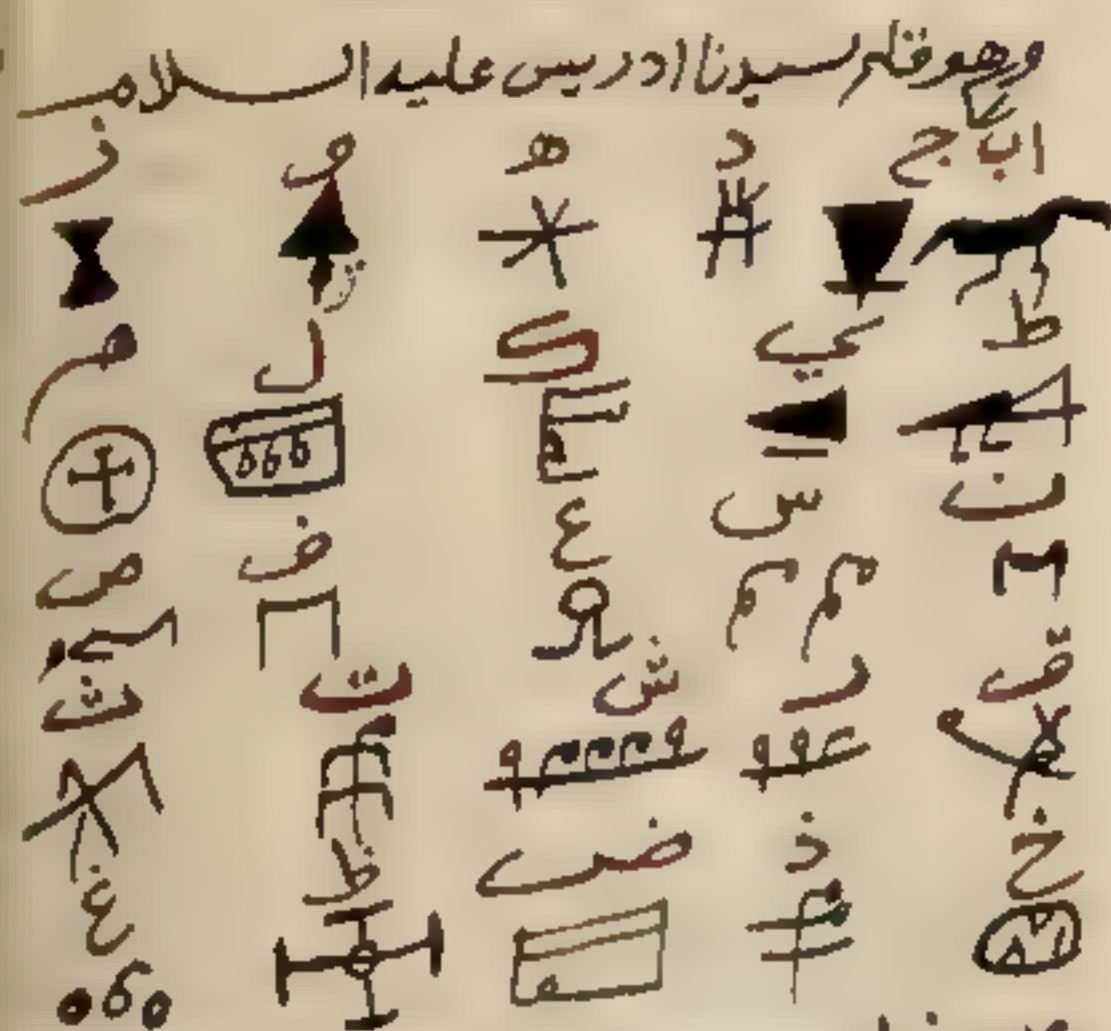 وهو قلم لسيدنا ادريس عليه السلام
ا ب ج د ه و ز
ط ي ك ل م
ن س ع ف ص
ق ر ش ت ث
خ ذ ض ظ غ